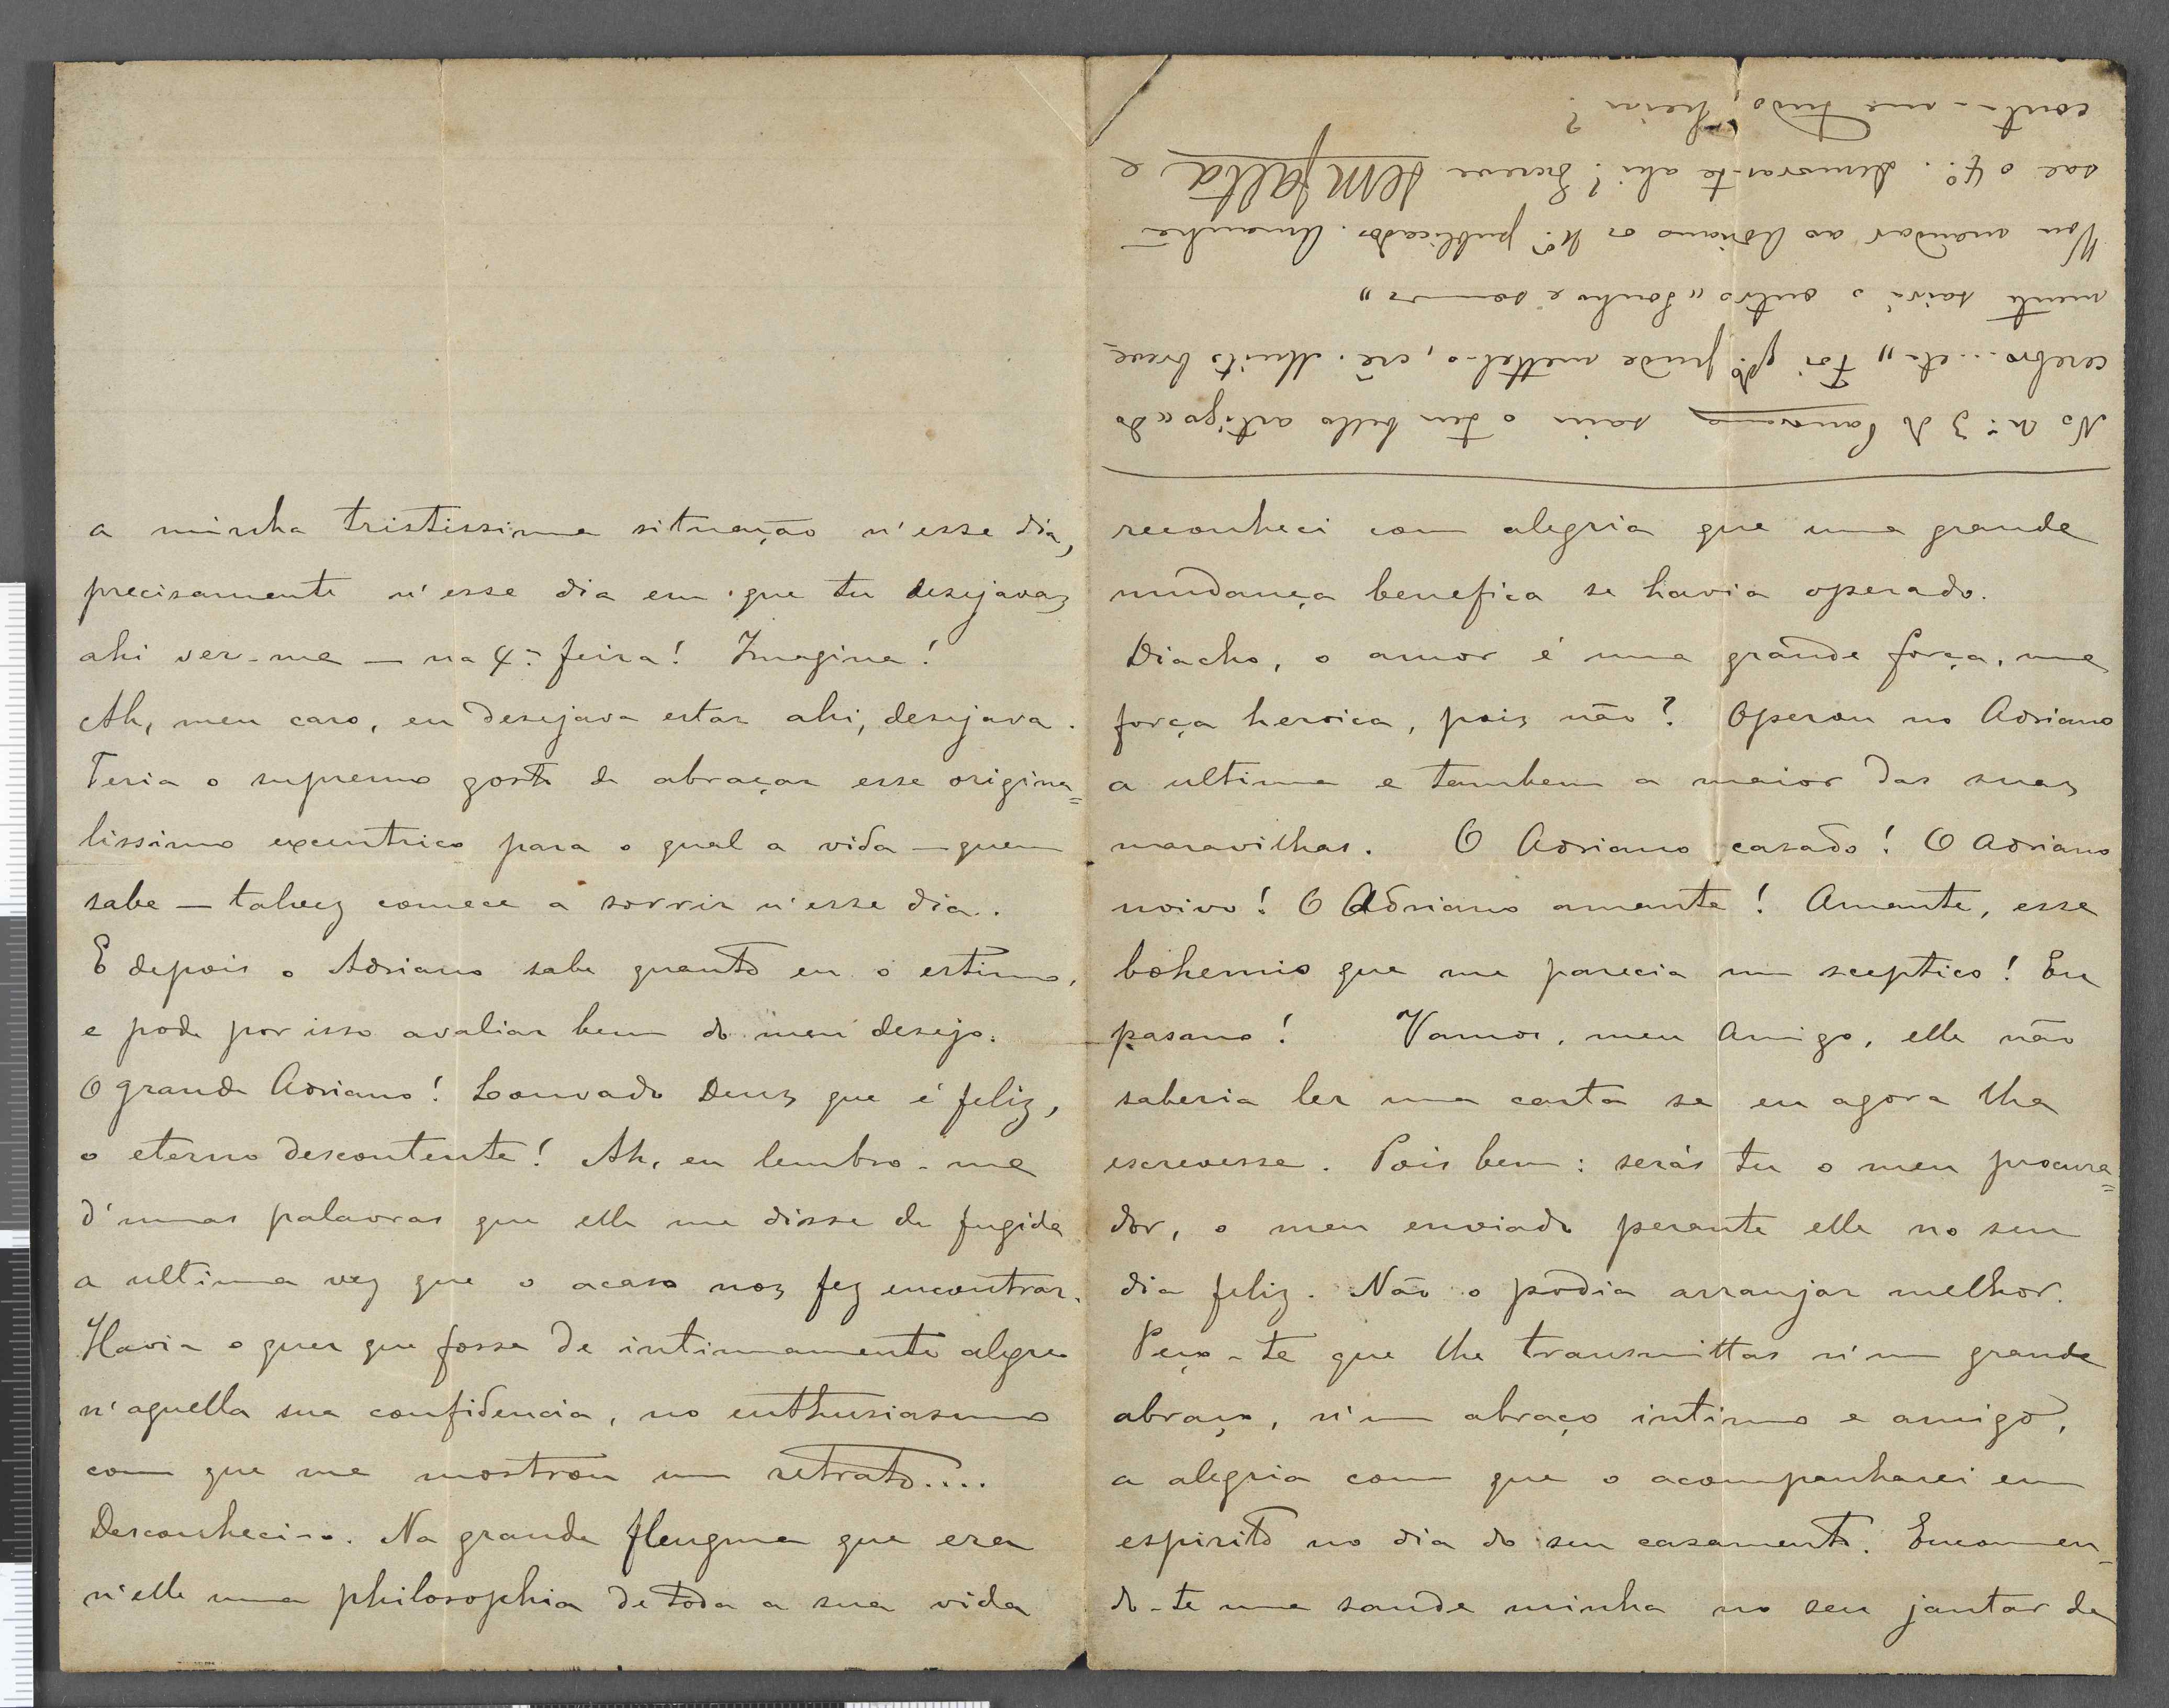 a minha tristissima situação n'esse dia,
precisamente n'esse dia em que tu desejavas
ahi ver-me — na 4.ª feira! Imagina!
Ah, meu caro, eu desejava estar ahi, desejava.
Teria o supremo gosto de abraçar esse origina=
lissimo excentrico para o qual a vida — quem
sabe — talvez comece a sorrir n'esse dia.
E depois o Adriano sabe quanto eu o estimo,
e pode por isso avaliar bem do meu desejo.
O grande Adriano! Louvado Deus que é feliz,
o eterno descontente! Ah, eu lembro-me
d'umas palavras que elle me disse de fugida
a ultima vez que o acaso nos fez encontrar.
Havia o quer que fosse de intimamente alegre
n'aquella sua confidencia, no enthusiasmo
com que me mostrou um retrato....
Desconheci-o. Na grande fleugma que era
n'elle uma philosophia de toda a sua vida
reconheci com alegria que uma grande
mudança benefica se havia operado.
Diacho, o amor é uma grande força, uma
força heroica, pois não? Operou no Adriano
a ultima e tambem a maior das suas
maravilhas. O Adriano casado! O Adriano
noivo! O Adriano amante! Amante, esse
bohemio que me parecia um sceptico! Eu
pasmo! Vamos, meu amigo, elle não
saberia ler uma carta se eu agora lha
escrevesse. Pois bem: serás tu o meu procura=
dor, o meu enviado perante elle no seu
dia feliz. Não o podia arranjar melhor.
Peço-te que lhe transmittas n'um grande
abraço, n'um abraço intimo e amigo,
a alegria com que o acompanharei em
espirito no dia do seu casamento. Encomen-
do-te uma saude minha no seu jantar de
No n.º 3 do saiu o teu bello artigo "do
cerebro... etc" Foi q.do pude mettel-o, crê. Muito breve-
mente sairá o outro "Sonho e
Vou mandar ao Adriano os N.os publicados. Amanhã
sae o 4.º. Demoras-te ahi? Escreve sem falta e
conta-me tudo, hein?